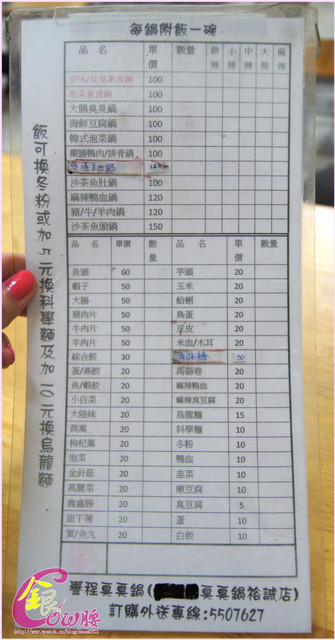 每鍋附飯一碗
品 名 單價 數量 微辣 小辣 中辣 大辣 麻辣
100
泡菜素食鍋 100
大腸臭臭鍋 100
海鮮豆腐鍋 100
韓式泡菜鍋 100
藥膳鴨肉/排骨鍋 100
沙茶魚肚鍋 100
麻辣鴨血鍋 120
豬/牛/羊肉鍋 100
沙茶魚頭鍋 150
品 名 單價 數量 品 名 單價 數量
魚頭 60 芋頭 20
蝦子 50 玉米 20
大腸 50 蛤蜊 20
豬肉片 50 鳥蛋 20
牛肉片 50 豆皮 20
羊肉片 50 米血/木耳 20
綜合餃 30
蛋/燕餃 20 蒟蒻卷 20
魚/蝦餃 20 麻辣鴨血 20
小白菜 20 麻辣臭豆腐 20
大陸妹 20 烏龍麵 15
茼蒿 20 科學麵 10
枸杞葉 20 冬粉 10
泡菜 20 鴨血 10
金針菇 20 韭菜 10
高麗菜 20 嫩豆腐 10
鑫鑫腸 20 臭豆腐 5
甜不辣 20 蛋 10
貢/魚丸 20 白飯 10
飯可換冬粉或加5元換科學麵及加10元換烏龍麵
譽程真真鍋(真真鍋裕誠店)
訂購外送專線:5507627
金COW腰